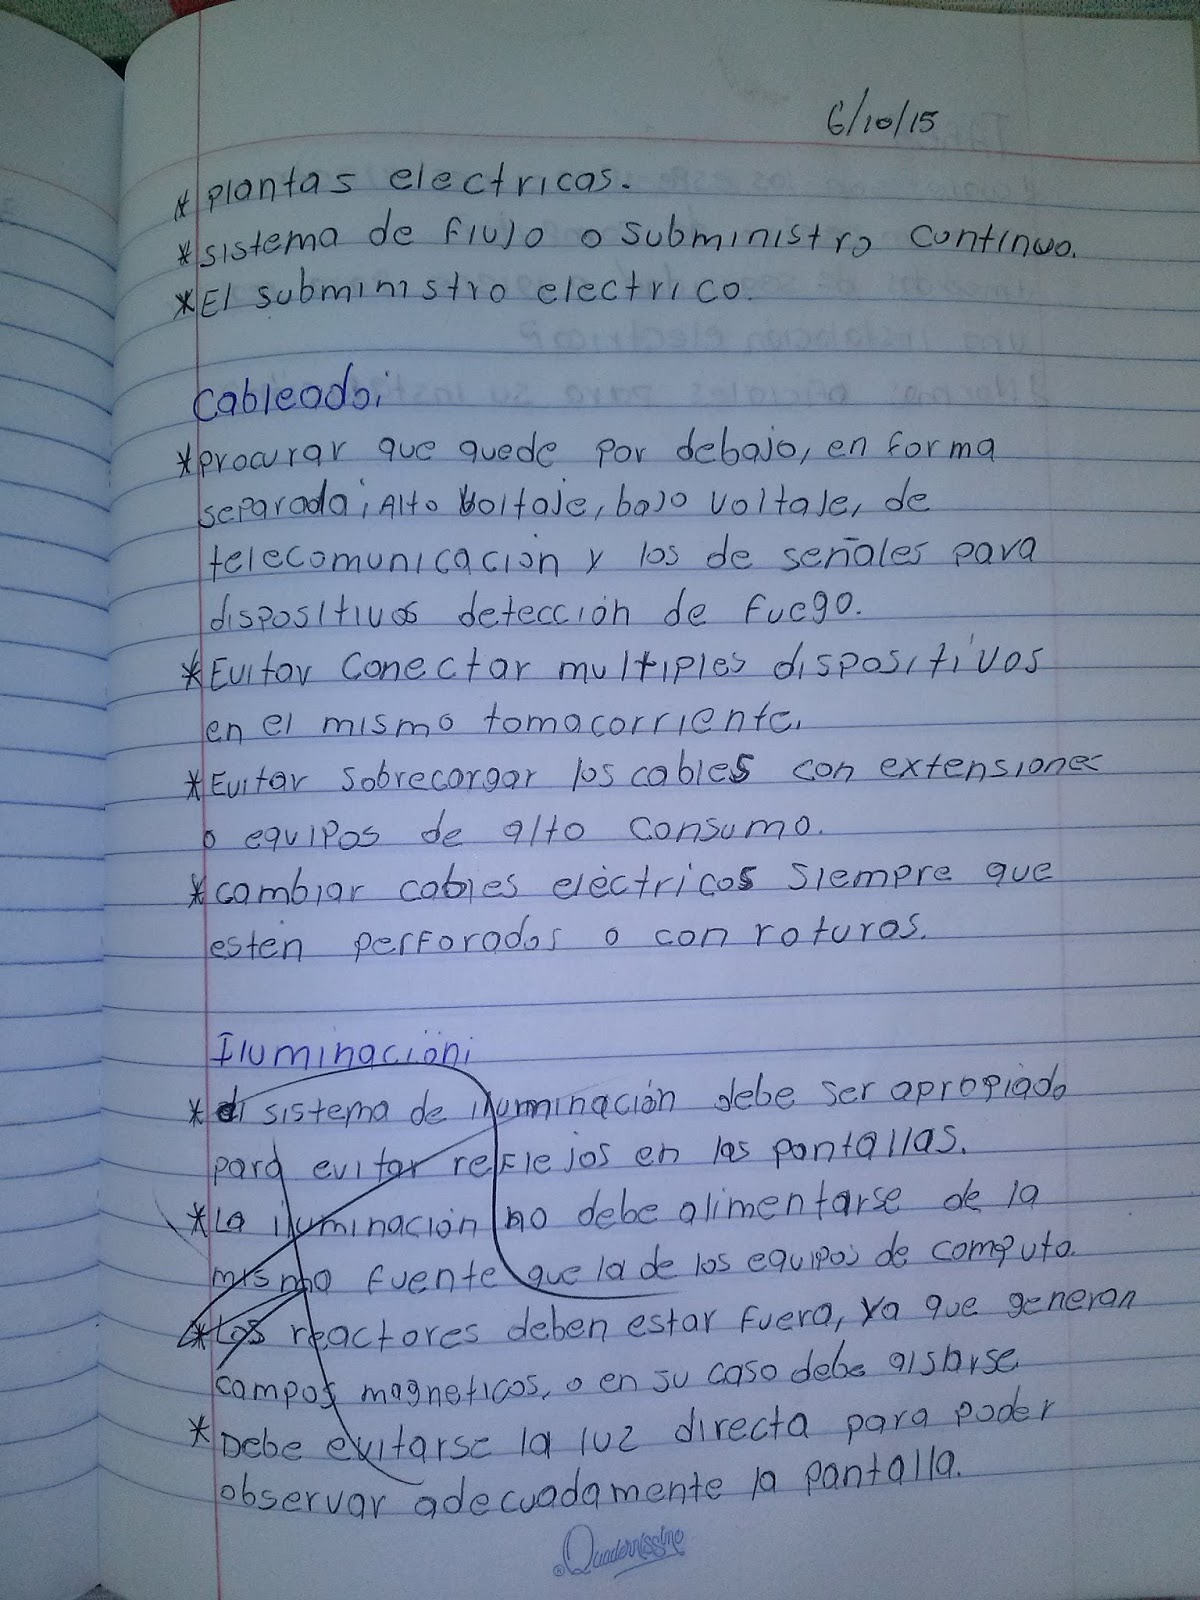 6/10/15
* plantas electricas.
* sistema de flujo o subministro continuo.
* El subministro electrico.
Cableado;
* procurar que quede por debajo, en forma
separada; Alto Voltaje, bajo voltaje, de
telecomunicación y los de señales para
dispositivos detección de fuego.
* Evitar conectar multiples dispositivos
en el mismo tomacorriente.
* Evitar sobrecargar los cables con extensiones
o equipos de alto consumo.
* cambiar cables eléctricos siempre que
esten perforados o con roturas.
Iluminación;
* el sistema de iluminación debe ser apropiado
para evitar reflejos en las pantallas.
* La iluminación no debe alimentarse de la
misma fuente que la de los equipos de computo.
* Los reactores deben estar fuera, ya que generan
campos magneticos, o en su caso debe aislarse
* Debe evitarse la luz directa para poder
observar adecuadamente la pantalla.
Quadernissimo